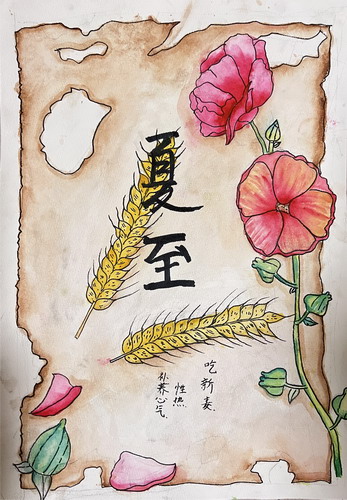 夏至
吃新麦
性热
补养心气